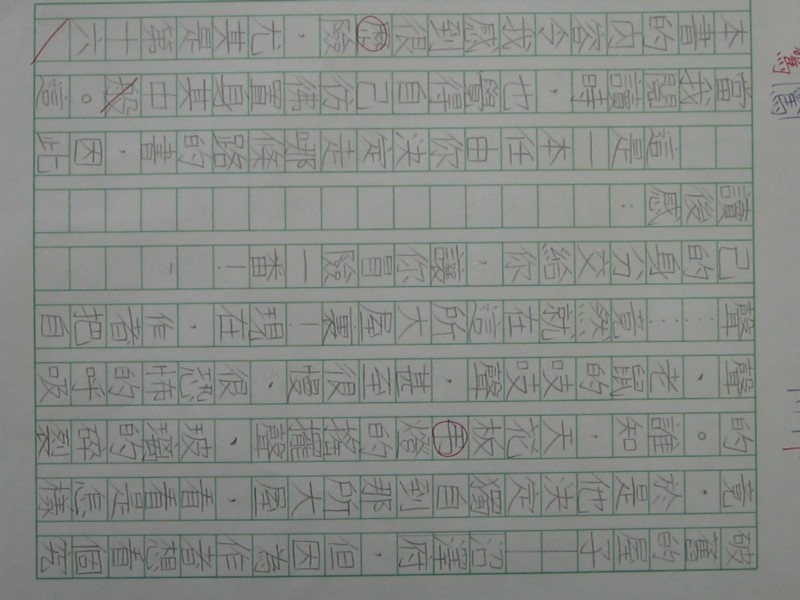 破舊的屋子——沼澤府,但因為作者想看個究
竟,於是他決定獨自到那所大屋,看看是怎樣
的。誰知,天花板燈的搖擺聲,玻璃的碎裂
聲,老鼠的吱吱聲,甚至很慢,很恐怖的呼吸
聲……竟然就在這所大屋裏!現在,作者把自
己的身分交給你,讓你冒險一番!
讀後感:
這是一本任由你決定走哪條路的書,因此
當我閱讀時,也覺得自己彷彿置身其中般。這
本書的內容令我感到很險,尤其是第十六